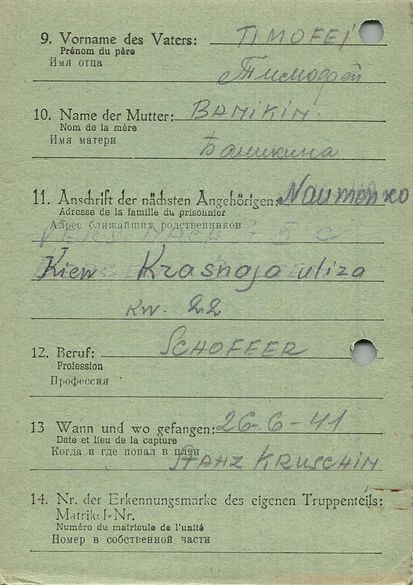 9. Vorname des Vaters: TIMOFEI
Prénom du père
Имя отца Тимофей
10. Name der Mutter: BANIKIN.
Nom de la mère
Имя матери Баникина
11. Anschrift der nächsten Angehörigen: Naumenko
Adresse de la famille du prisonnier
Адрес ближайших родственников
Kiew Krasnaja uliza
KW. 22
12. Beruf: SCHOFFER
Profession
Профессия
13 Wann und wo gefangen: 26-6-41
Date et lieu de la capture
Когда и где попал в плен
STANZ KRUSCHIN
14. Nr. der Erkennungsmarke des eigenen Truppenteils:
Matrikel-Nr.
Numéro du matricule de l'unité
Номер в собственной части